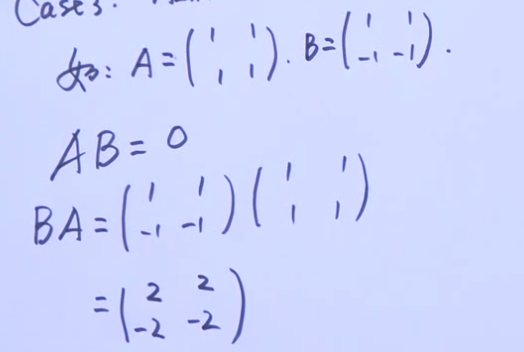 Case 3.
如: A = ( 1 1 ; 1 1 ). B = ( 1 1 ; -1 -1 ).
AB = 0
BA = ( 1 1 ; -1 -1 ) ( 1 1 ; 1 1 )
= ( 2 2 ; -2 -2 )